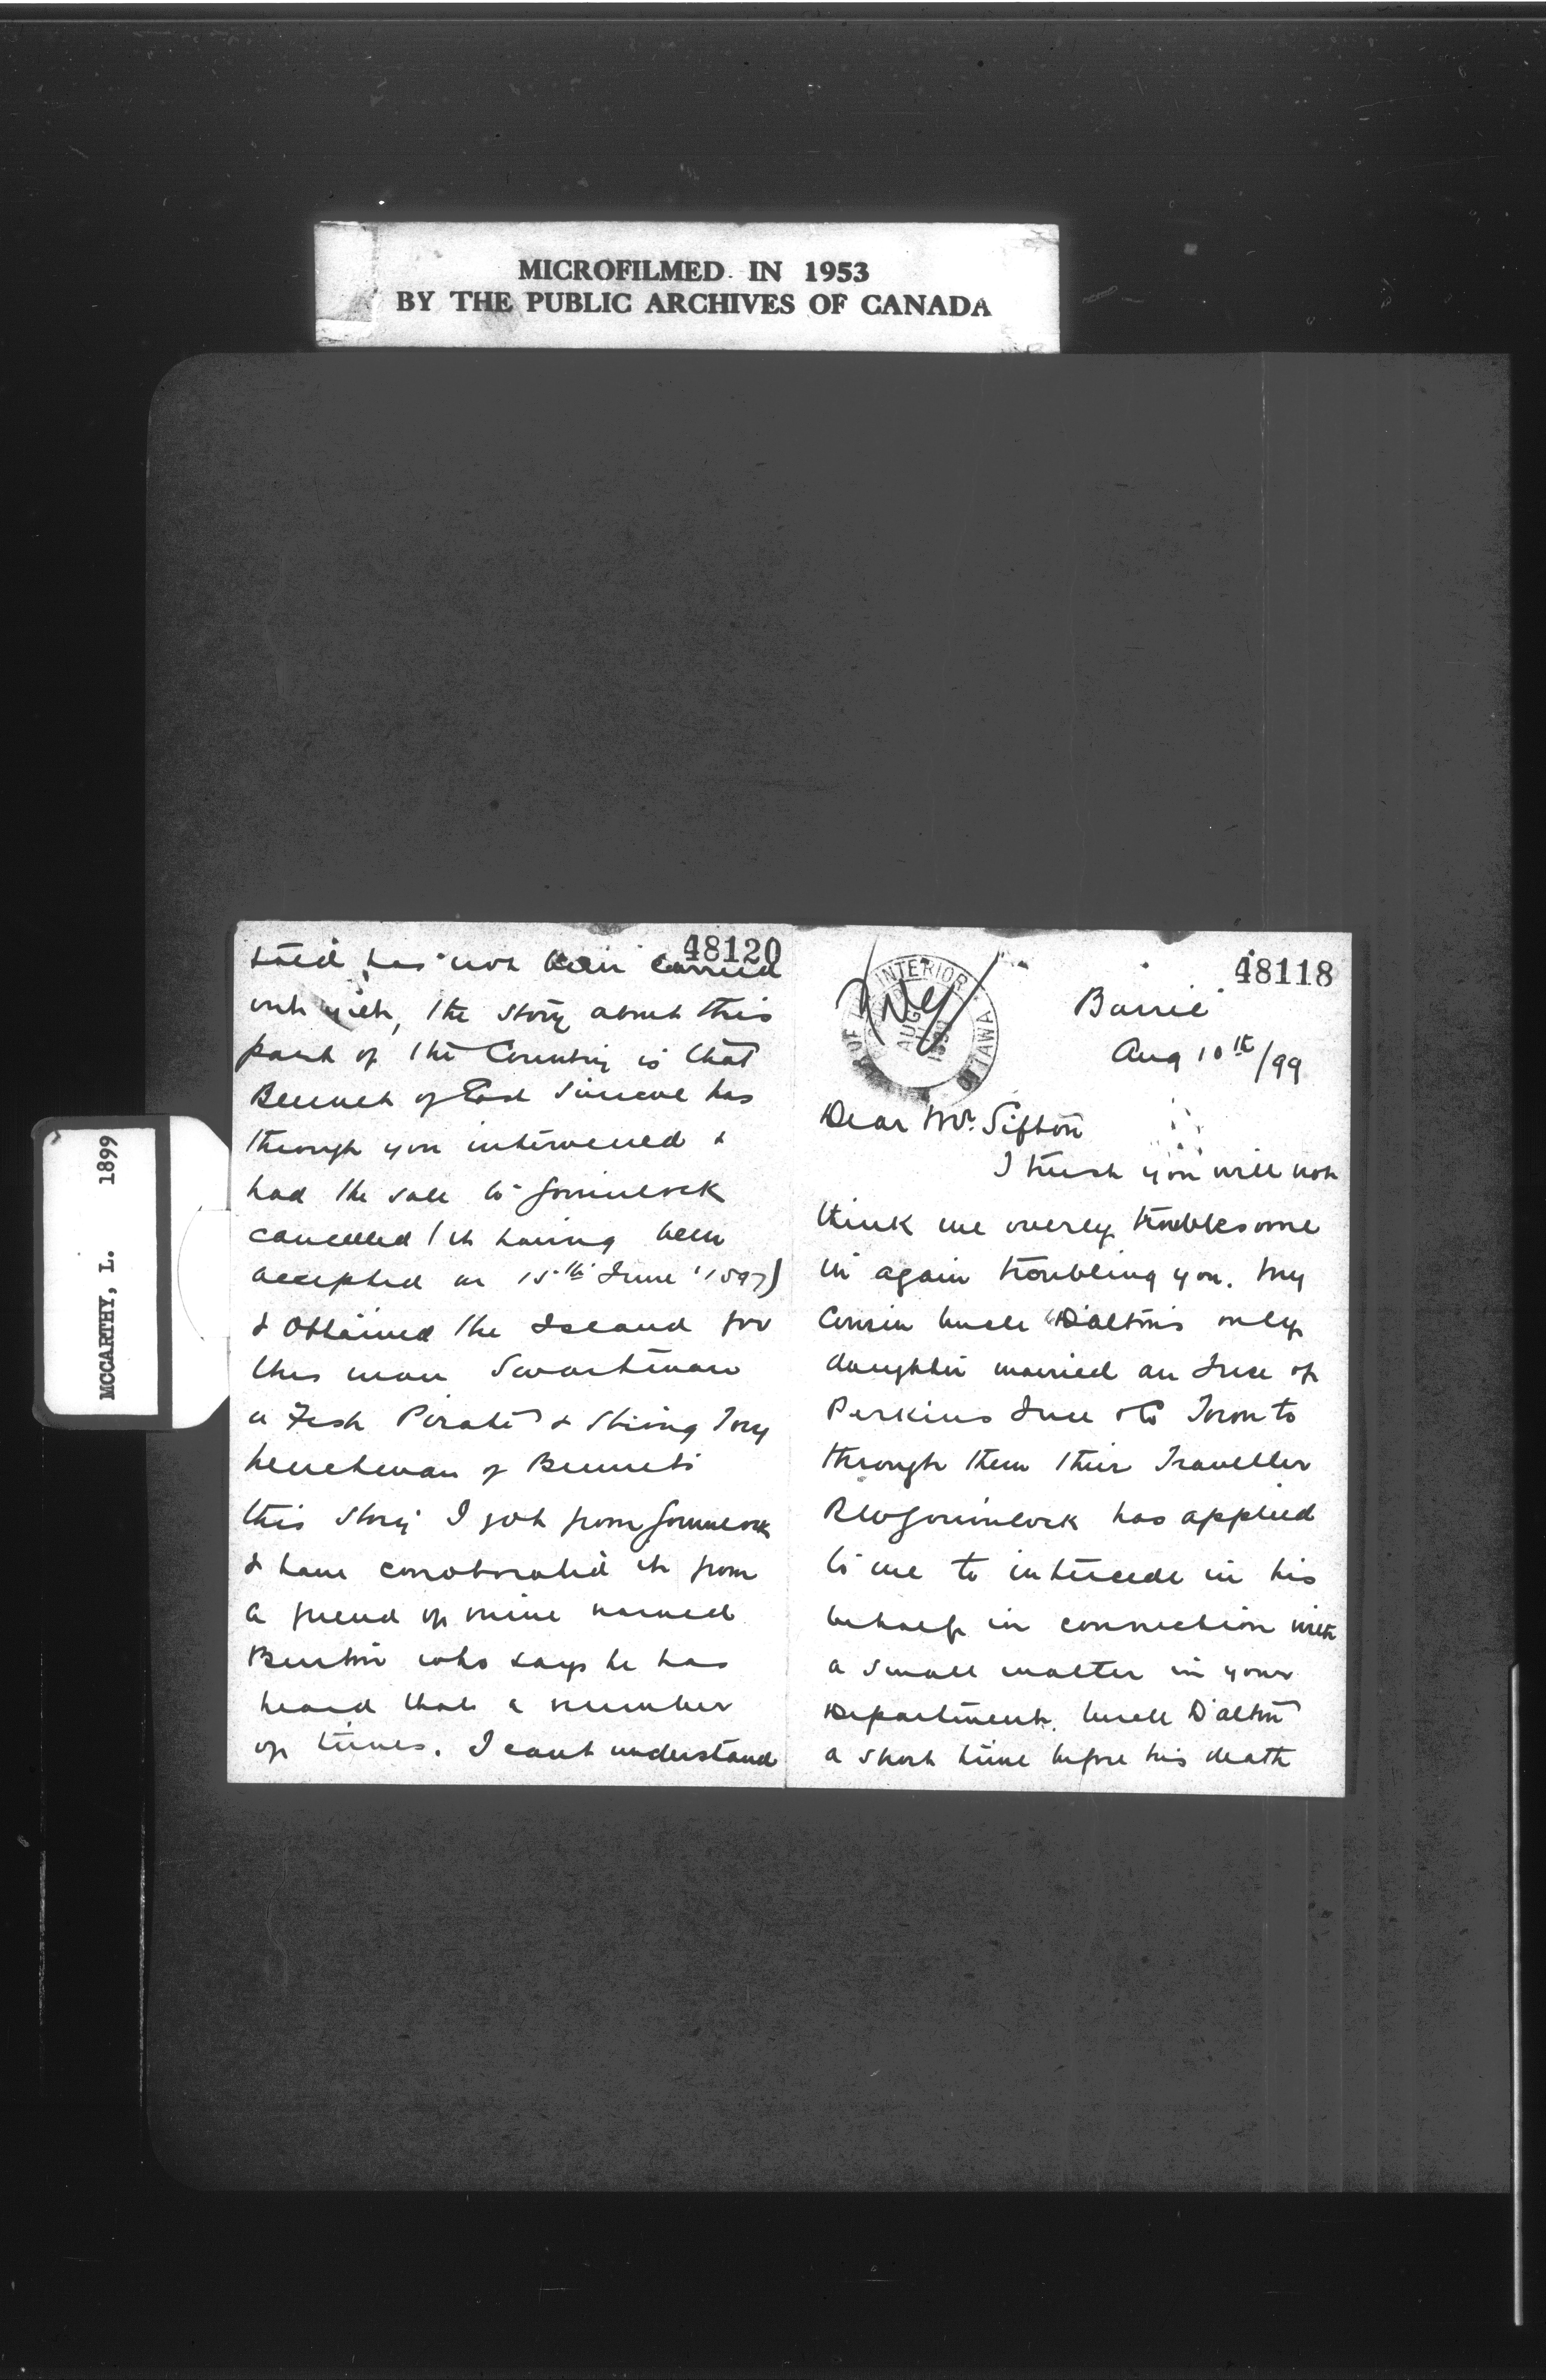 MICROFILMED IN 1953
BY THE PUBLIC ARCHIVES OF CANADA
MCCARTHY, L. 1899
48120
has not been carried
out, the story about this
part of the Country is that
Bennet of East Simcoe has
through you intervened &
had the sale to Gormlock
cancelled (it having been
accepted on 15th June 1897)
& obtained the Island for
this man Swartman
a Fish Pirate & Strong Tory
henchman of Bennets
this story I got from Gormlock
& have corroborated it from
a friend of mine named
Burton who says he has
heard that a number
of times. I cant understand
48118
INTERIOR
AUG
OTTAWA
Barrie
Aug 10th/99
Dear Mr. Sifton
I trust you will not
think me overly troublesome
in again troubling you. My
Cousin Uncle Dalton's only
daughter married an Ince of
Perkins Ince & Co Toronto
through them their Traveller
Gormlock has applied
to me to intercede in his
behalf in connection with
a small matter in your
Department. Uncle Dalton
a short time before his death